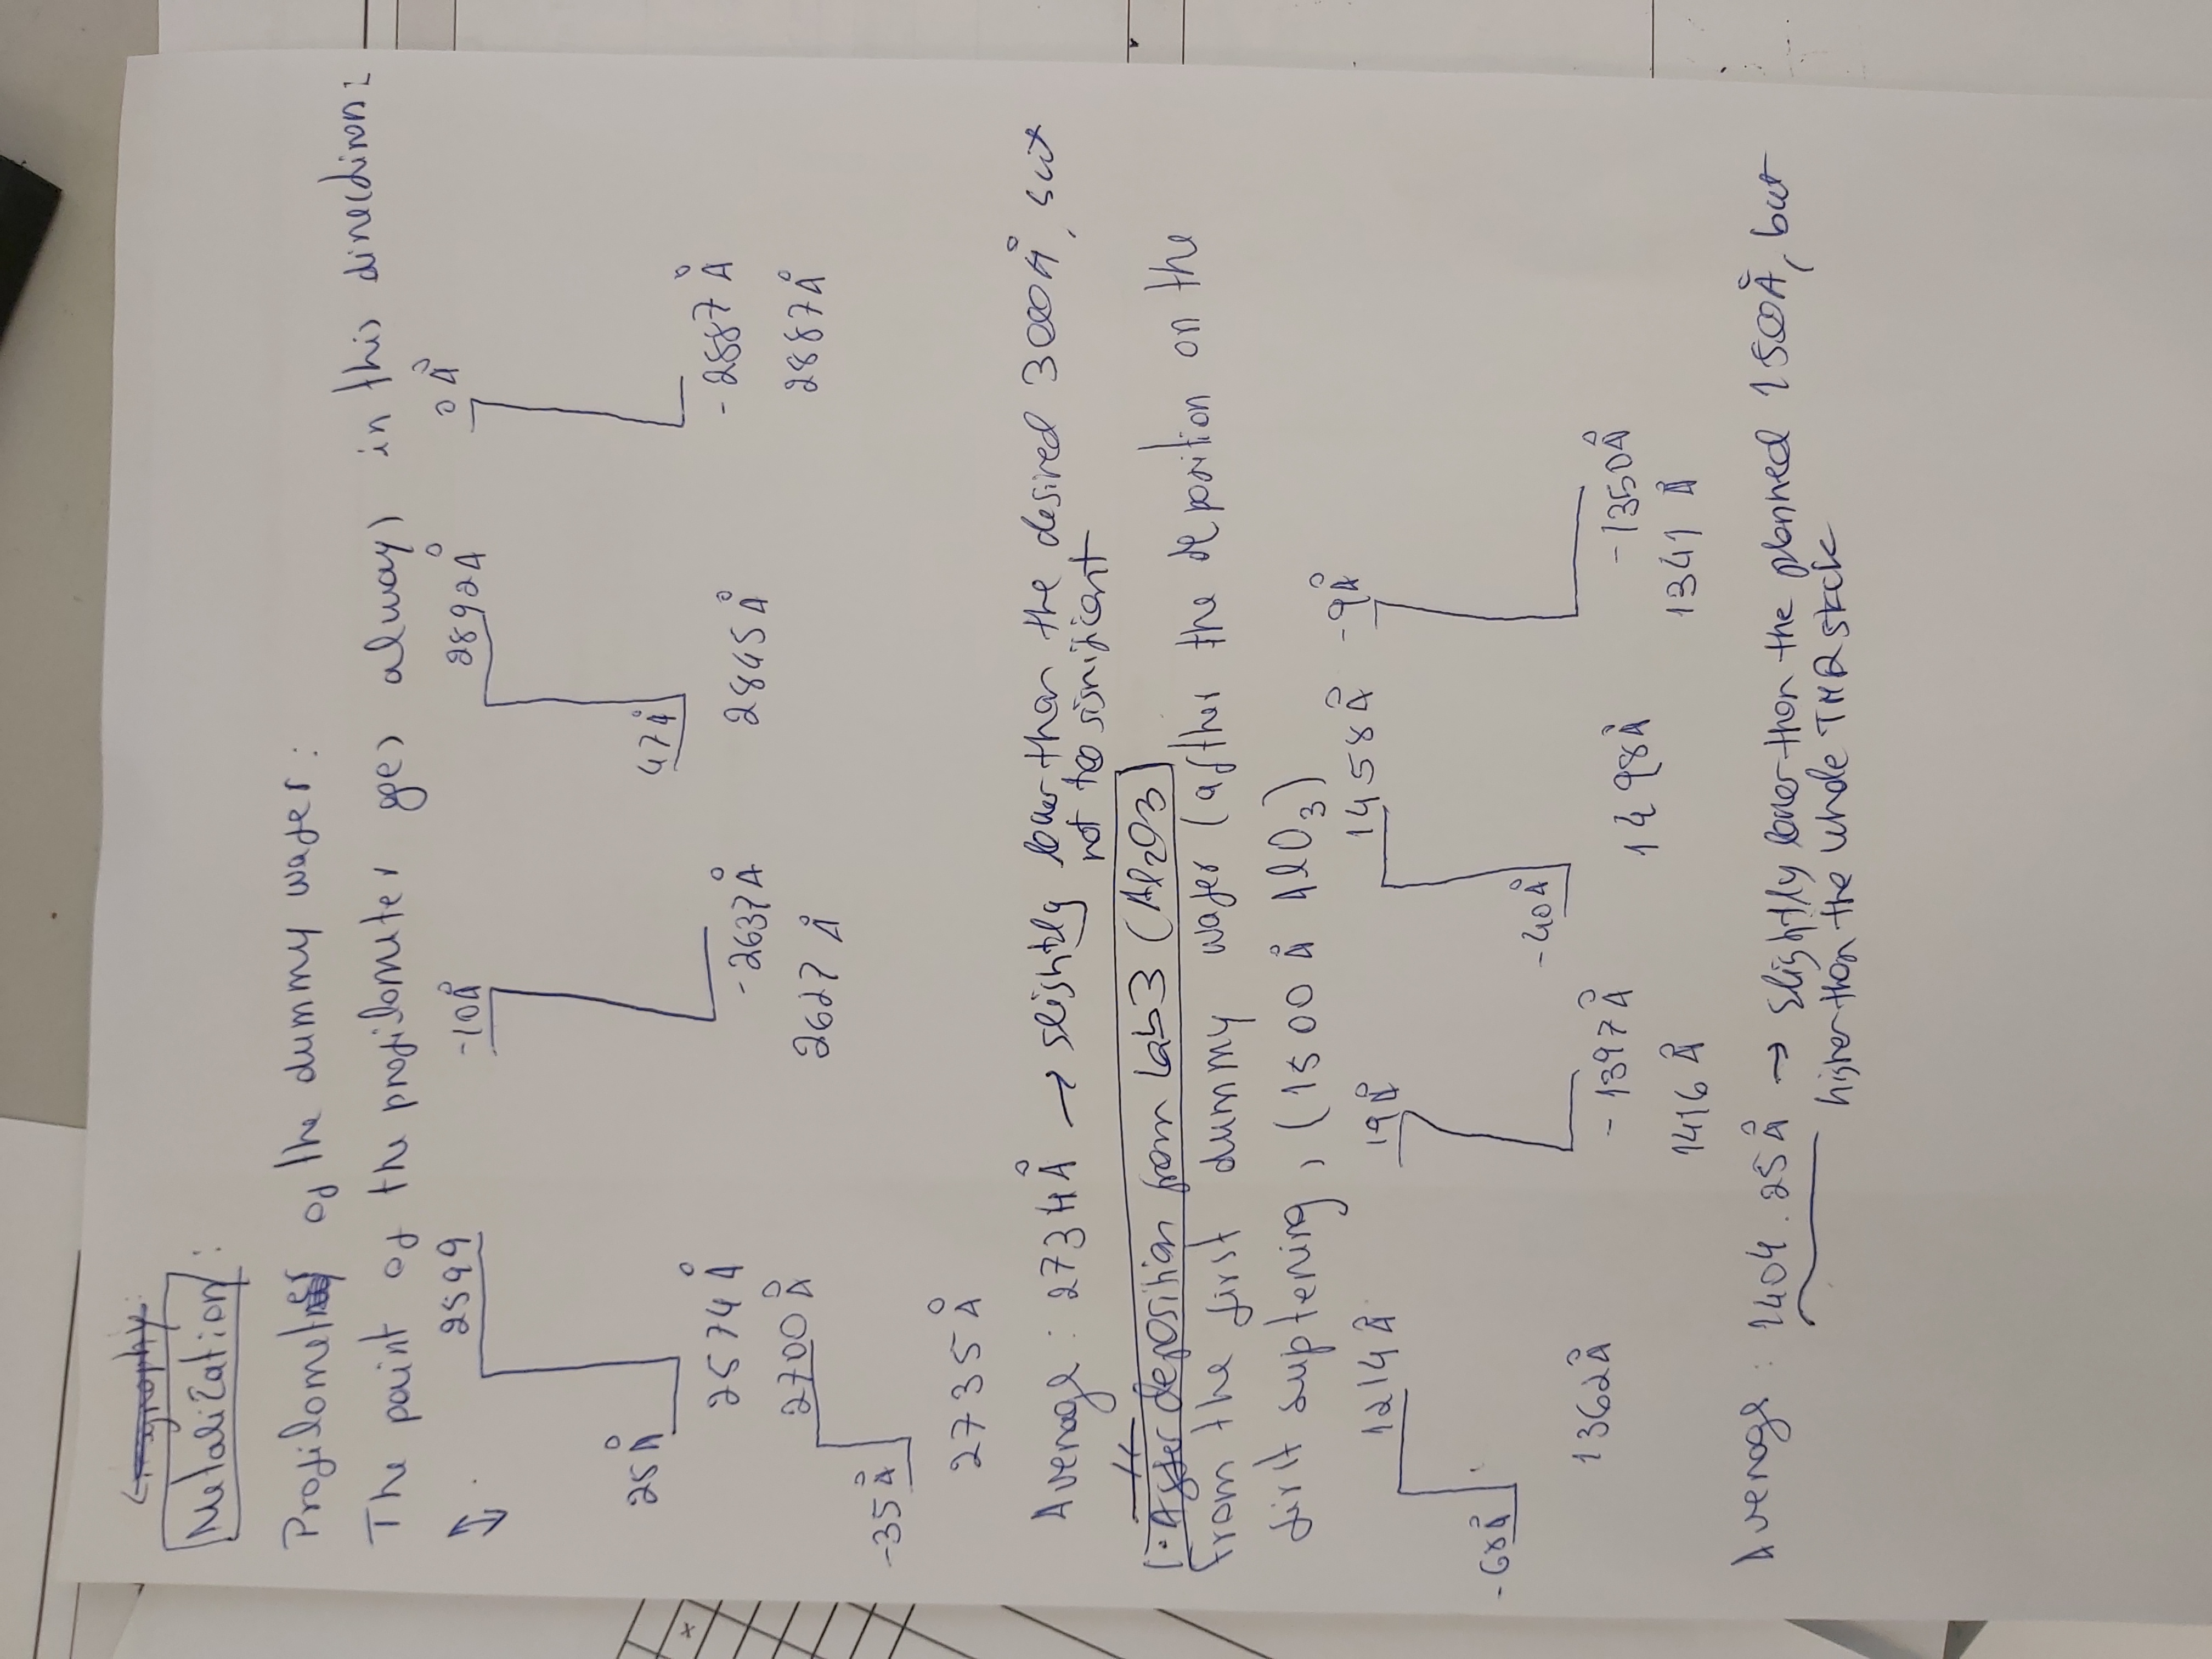 Metalization:
Profilometer of the dummy wafer:
The point of the profilometer goes always in this direction:
2599 -10Å 2892Å 0Å
25Å 47Å
2574Å -2637Å 2845Å -2887Å
2700Å 2627Å 2887Å
-35Å
2735Å
Average: 2734Å → slightly lower than the desired 3000Å, but
not too significant
1. After deposition from Lab3 (Al2O3)
From the first dummy wafer (afther the deposition on the
first suptening, (1500Å AlO3)
1214Å 19Å 1458Å -9Å
-68Å -40Å
1362Å -1397Å 1498Å -1350Å
1416Å 1341Å
Average: 1404.25Å → slightly lower than the planned 1500Å, but
higher than the whole TMR stack